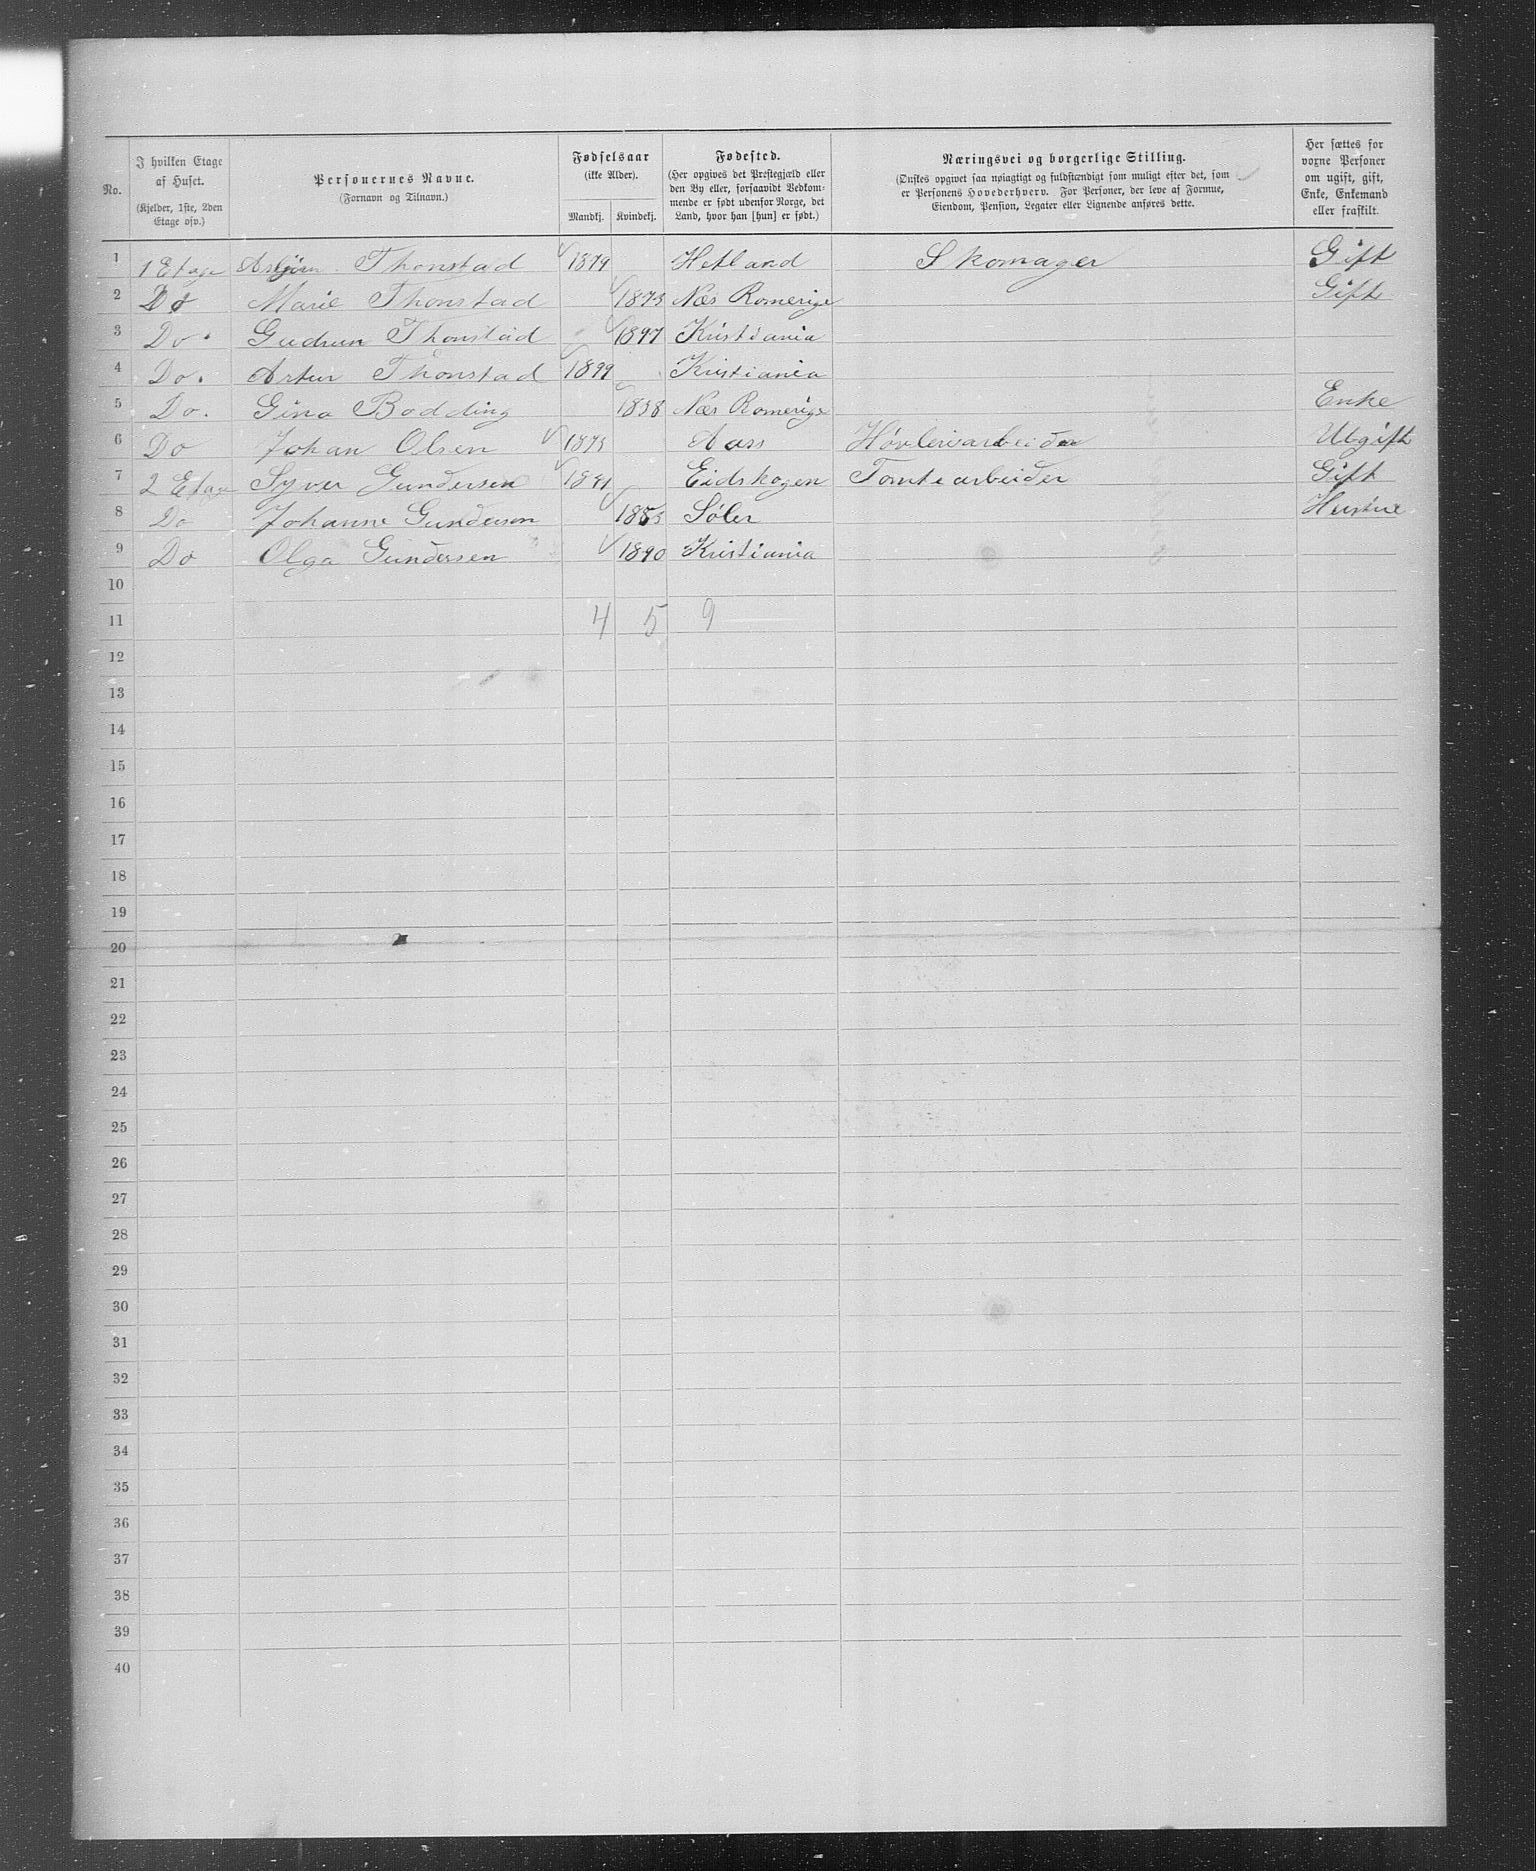 No.
I hvilken Etage af Huset.
(Kjelder, 1ste, 2den Etage osv.)
Personernes Navne.
(Fornavn og Tilnavn.)
Fødselsaar
(ikke Alder).
Mandkj. Kvindekj.
Fødested.
(Her opgives det Præstegjæld eller den By eller, forsaavidt Vedkommende er født udenfor Norge, det Land, hvor han [hun] er født.)
Næringsvei og borgerlige Stilling.
(Ønskes opgivet saa nøiagtigt og fuldstændigt som muligt efter det, som er Personens Hovederhverv. For Personer, der leve af Formue, Eiendom, Pension, Legater eller Lignende anføres dette.
Her sættes for voxne Personer om ugift, gift, Enke, Enkemand eller fraskilt.
1 1 Etage Asbjørn Thonstad 1879 Hetland Skomager Gift
2 Do Marie Thonstad 1873 Næs Romerige Gift
3 Do. Gudrun Thonstad 1897 Kristiania
4 Do. Artur Thonstad 1899 Kristiania
5 Do. Gina Bodding 1838 Næs Romerige Enke
6 Do Johan Olsen 1873 Aass Høvleriarbeider Ubgift
7 2 Etage Syver Gundersen Eidskogen Tomtearbeider Gift
8 Do Johanne Gundersen Søler Hustru
9 Do Olga Gundersen 1890 Kristiania
10
11 4 5 9
12
13
14
15
16
17
18
19
20
21
22
23
24
25
26
27
28
29
30
31
32
33
34
35
36
37
38
39
40